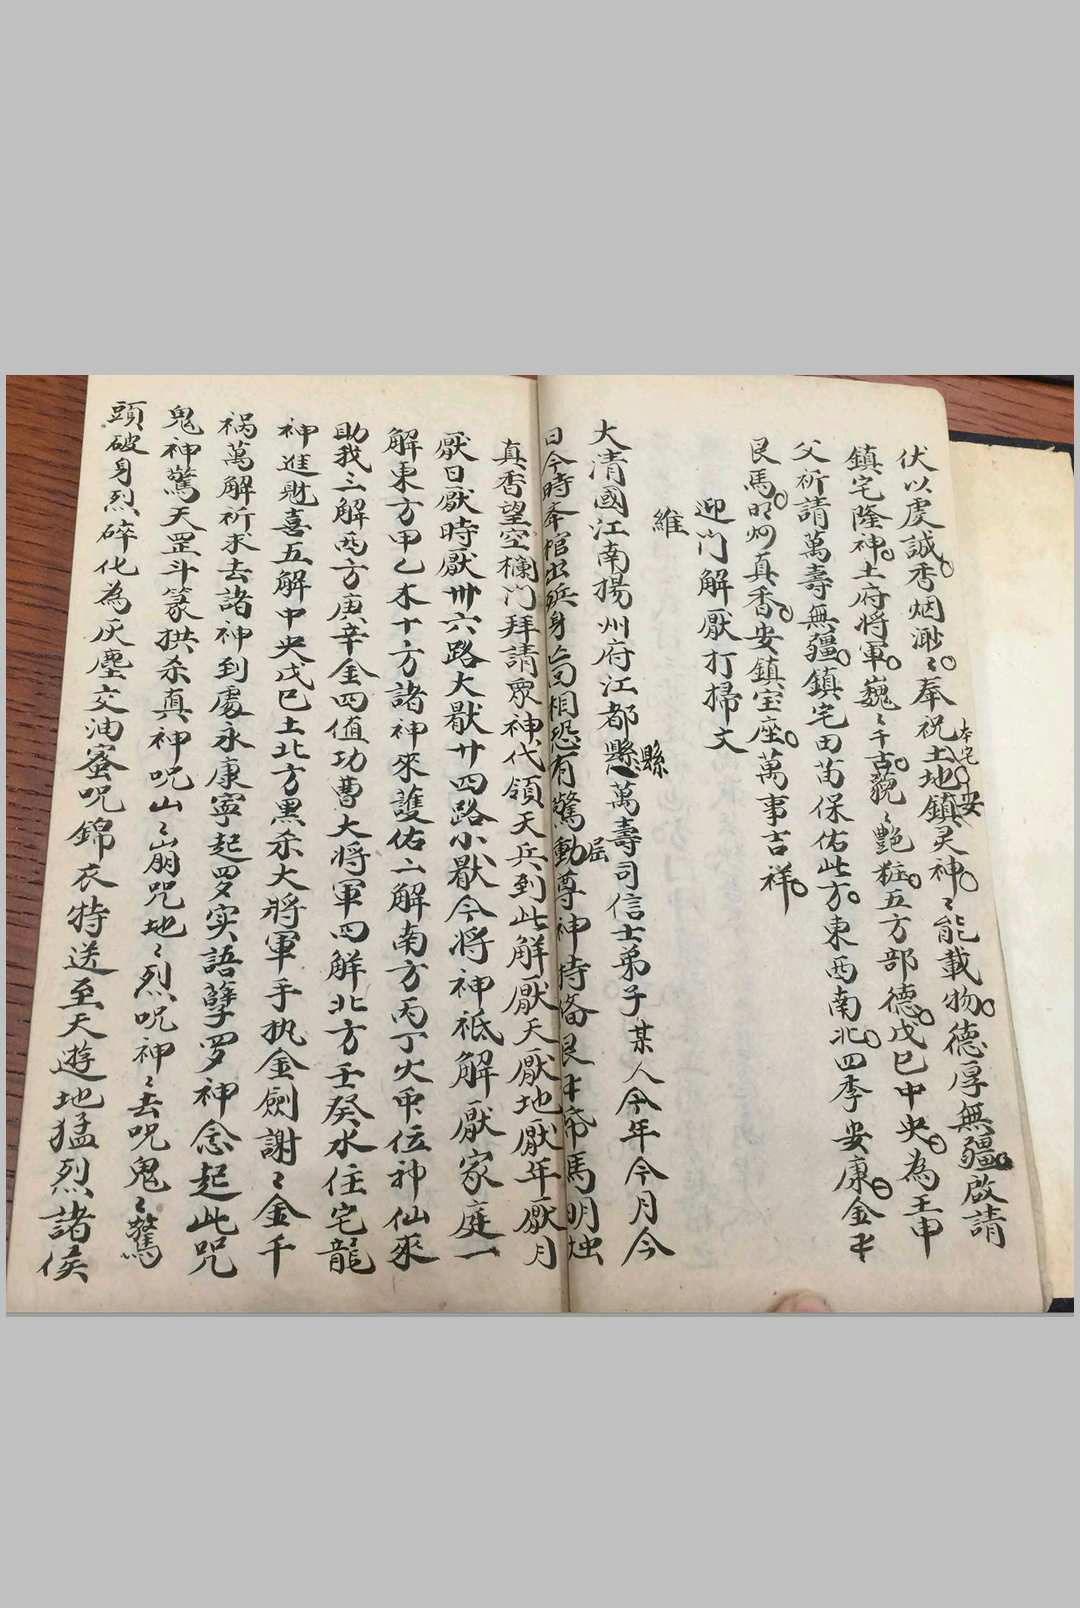 伏以虔誠香烟渺〻奉祝土地鎮灵神〻能載物德厚無疆啟請
本宅安
鎮宅隆神土府將軍巍〻千古藐〻艶粧五方部德戊巳中央為王申
父祈請萬壽無疆鎮宅田苗保佑此方東西南北四季安康金
艮馬明炯真香安鎮宝座萬事吉祥
迎門解厭打掃文
維
縣
大清國江南揚州府江都縣萬壽司信士弟子某人今年今月今
屈
日今時 棺出 身 相恐有驚動尊神特俻艮 馬明烛
真香望空欄門拜請眾神代領天兵到此解厭天厭地厭年厭月
厭日厭時厭卅六路大厭廿四路小厭今將神祇解厭家庭一
解東方甲乙木十方諸神來護佑二解南方丙丁火 位神仙來
助我三解西方庚辛金四值功曹大將軍四解北方壬癸水住宅龍
神進財喜五解中央戊巳土北方黑杀大將軍手执金劍謝〻金千
祸萬解祈求去諸神到處永康寧起 实語孽 神念起此咒
鬼神驚天罡斗篆拱杀真神呪山〻崩咒地〻烈呪神〻去呪鬼〻驚
頭破身烈碎化為灰塵交油蜜呪錦衣特送至天遊地猛烈諸侯